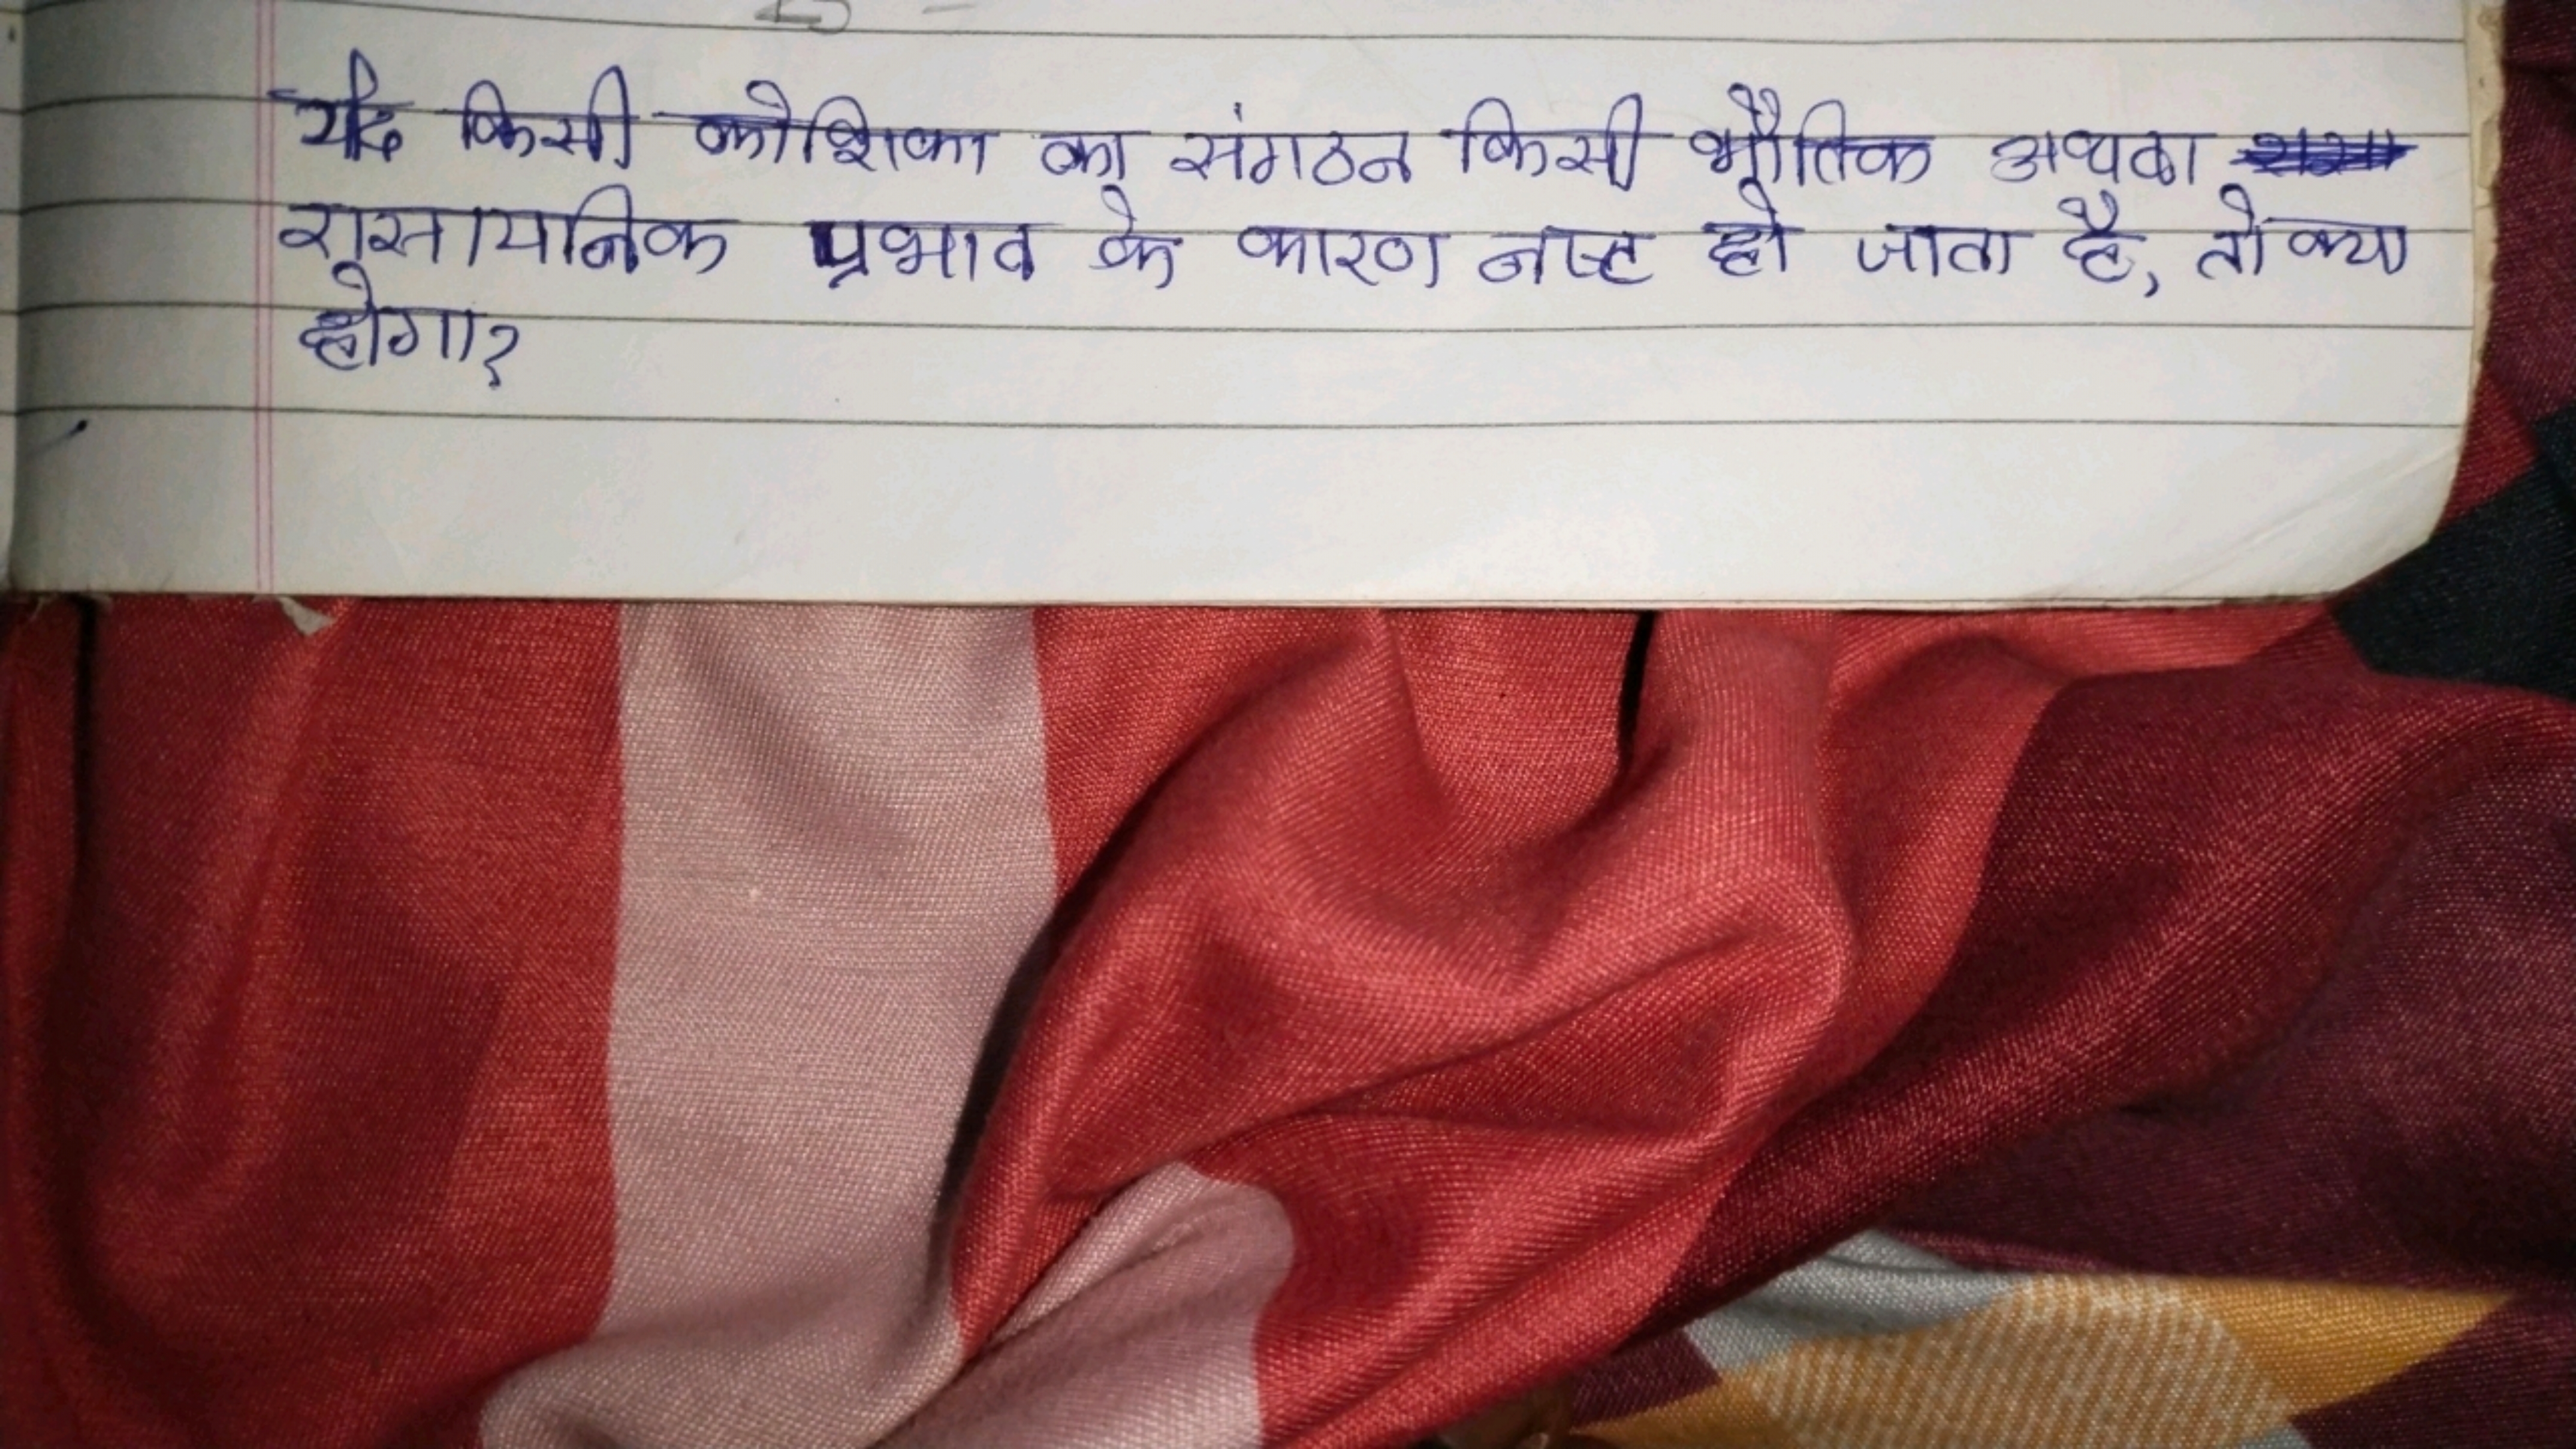 यदि किसी कोशिका का संगठन किसी भौतिक अथवा
रासायनिक प्रभाव के कारण नष्ट हो जाता है, तो क्या
होगा?